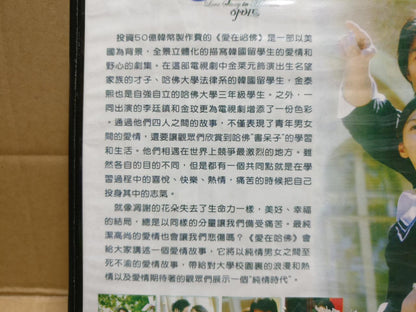 Love Story in Harvard
投資50億韓幣製作費的《愛在哈佛》是一部以美
國為背景，全景立體化的描寫韓國留學生的愛情和
野心的劇集。在這部電視劇中金萊元飾演出生名望
家族的才子、哈佛大學法律系的韓國留學生，金泰
熙也是自強自立的哈佛大學三年級學生。之外，一
同出演的李廷鎮和金玟更為電視劇增添了一份色彩
。通過他們四人之間的故事，不僅表現了青年男女
間的愛情，還要讓觀眾們欣賞到哈佛"書呆子"的學習
和生活。他們相遇在世界上競爭最激烈的地方。雖
然各自的目的不同，但是都有一個共同點就是在學
習過程中的喜悅、快樂、熱情，痛苦的時候把自己
投身其中的志氣。
就像凋謝的花朵失去了生命力一樣，美好、幸福
的結局，總是以同樣的分量讓我們備受痛苦。最純
潔高尚的愛情也會讓我們悲傷嗎？《愛在哈佛》會
給大家講述一個愛情故事，它將以純情男女之間至
死不渝的愛情故事，帶給對大學校園裏的浪漫和熱
情以及愛情期待著的觀眾們展示一個"純情時代"。